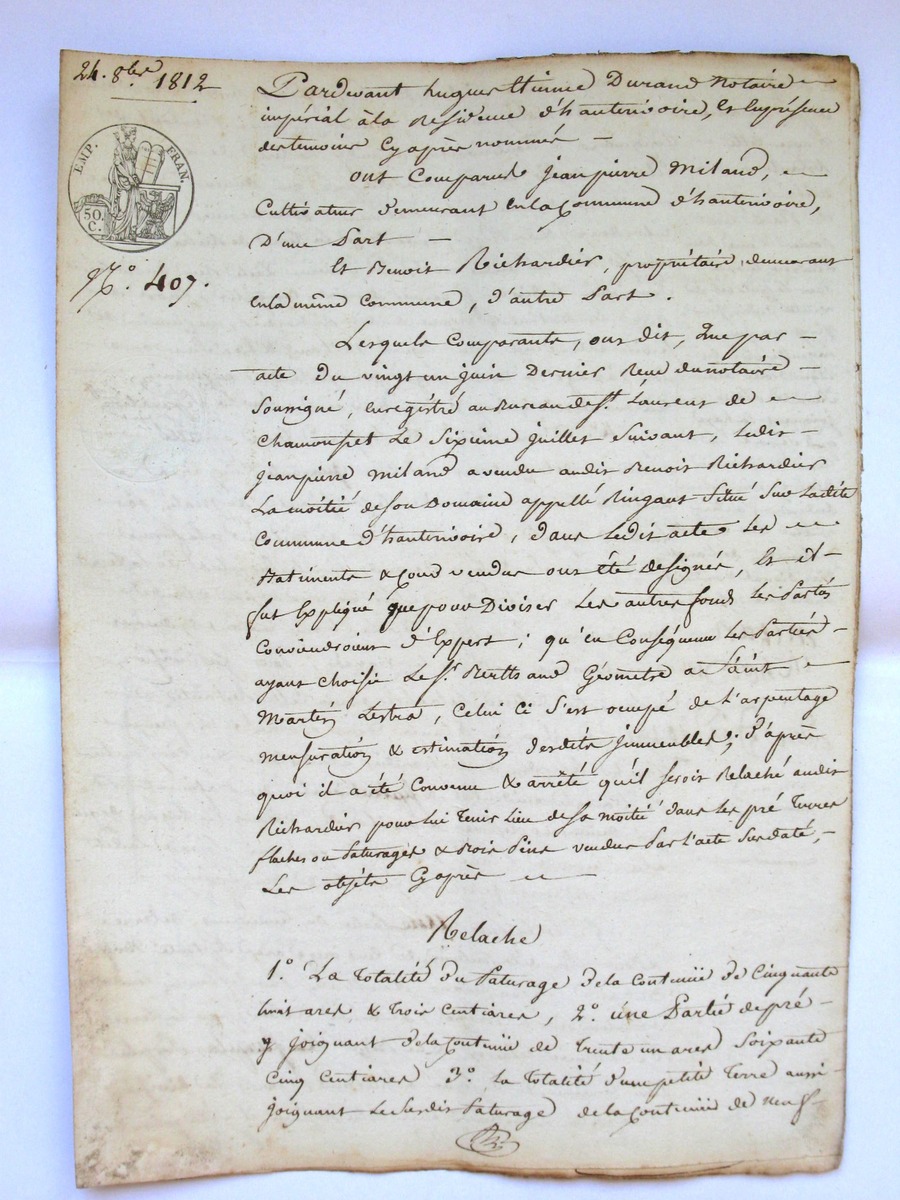 24. 8bre 1812
EMP. FRAN.
50.
C.
No. 407.
Pardevant hugues Etienne Durand Notaire
impérial à la Residence d'hauterivoire, Et En présence
des temoins Cy après nommés
ont Comparus jean pierre Miland,
Cultivateur demeurant En la Commune d'hauterivoire,
D'une Part
Et Benoit Richardier, propriétaire demeurant
En la même Commune, d'autre Part.
Lesquels Comparants, ont dit, Que par
acte du vingt un juin Dernier Reçu du notaire
Soussigné, Enregistré au Bureau de St. Laurent de
Chamousset Le Sixieme juillet Suivant, Ledit
jean pierre Miland a vendu audit Benoit Richardier
La moitié de son Domaine appellé Ringaut Situé Sur Ladite
Commune d'hauterivoire, dans Ledit acte Les
Batiments & Cour vendus ont été designés, Et il
fut Expliqué que pour Diviser Les autres fonds Les Parties
Conviendroient d'Expert; qu'en Conséquence Les Parties
ayant choisie Le Sr. Berthand Géometre a Saint
Martin Lestra, Celui Ci S'est ocupé de L'arpentage
mensuration & estimation desdits jmmeubles; d'après
quoi il a été Convenu & arrêté qu'il seroit Relaché audit
Richardier pour lui tenir Lieu de sa moitié dans Les pré Terres
flaches ou Paturages & Bois Pins vendus Par L'acte Susdaté,
Les objets Cy après
Relache
1.° La Totalité du Paturage de la Contenüe de Cinquante
huit ares & trois Centiares, 2.° une Partie de pré
y joignant de la Contenüe de trente un ares Soixante
Cinq Centiares 3.° La Totalité d'une petite Terre aussi
joignant Le Susdit Paturage de la Contenüe de neuf